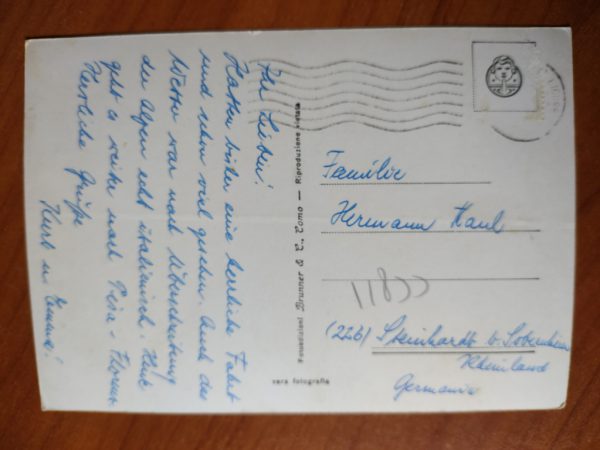 Ihr Lieben!
Hatten bisher eine herrliche Fahrt
und schon viel gesehen. Auch das
Wetter war nach Überschreitung
der Alpen echt italienisch. Heute
geht es weiter nach Pisa - Florenz.
Herzliche Grüße
Kurt u.
Edizioni Brunner & C. Como — Riproduzione vietata
vera fotografia
Familie
Hermann Kaul
11833
(22b) Steinhardt b. Sobernheim
Rheinland
Germania